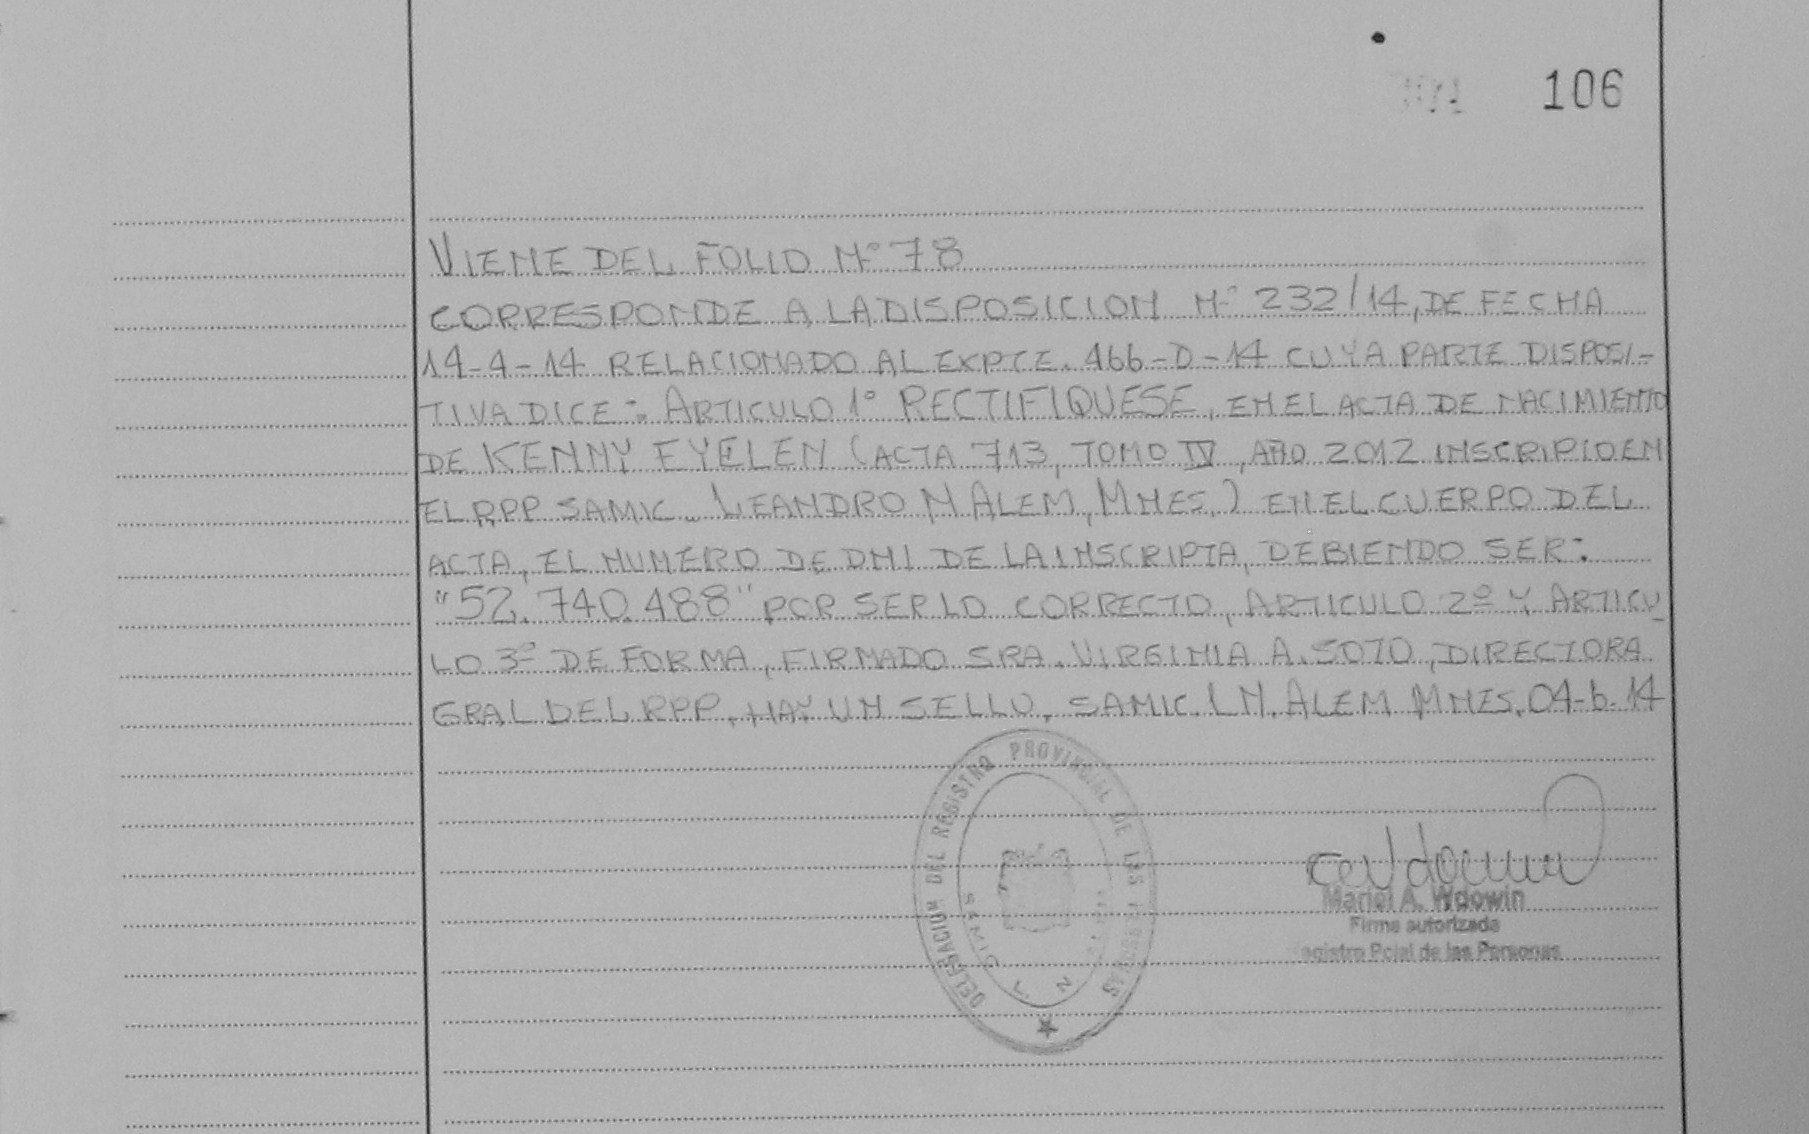 106
VIENE DEL FOLIO Nº 78
CORRESPONDE A LA DISPOSICION Nº 232/14, DE FECHA
14-4-14 RELACIONADO AL EXPTE. 466-D-14 CUYA PARTE DISPOSI-
TIVA DICE:. ARTICULO 1º RECTIFIQUESE, EN EL ACTA DE NACIMIENTO
DE KENNY EYELEN (ACTA 713, TOMO IV, AÑO 2012 INSCRIPTO EN
EL RPP SAMIC. LEANDRO N ALEM, MNES.) EN EL CUERPO DEL
ACTA, EL NUMERO DE DNI DE LA INSCRIPTA, DEBIENDO SER:
"52.740.488" POR SER LO CORRECTO, ARTICULO 2º Y ARTICU-
LO 3º DE FORMA, FIRMADO SRA. VIRGINIA A. SOTO, DIRECTORA
GRAL DEL RPP, HAY UN SELLO, SAMIC. L N. ALEM MNES. 04-6-14
DELEGACION DEL REGISTRO PROVINCIAL DE LAS PERSONAS
SAMIC
Mariel A. Wdowin
Firma autorizada
egistro Pcial de las Personas